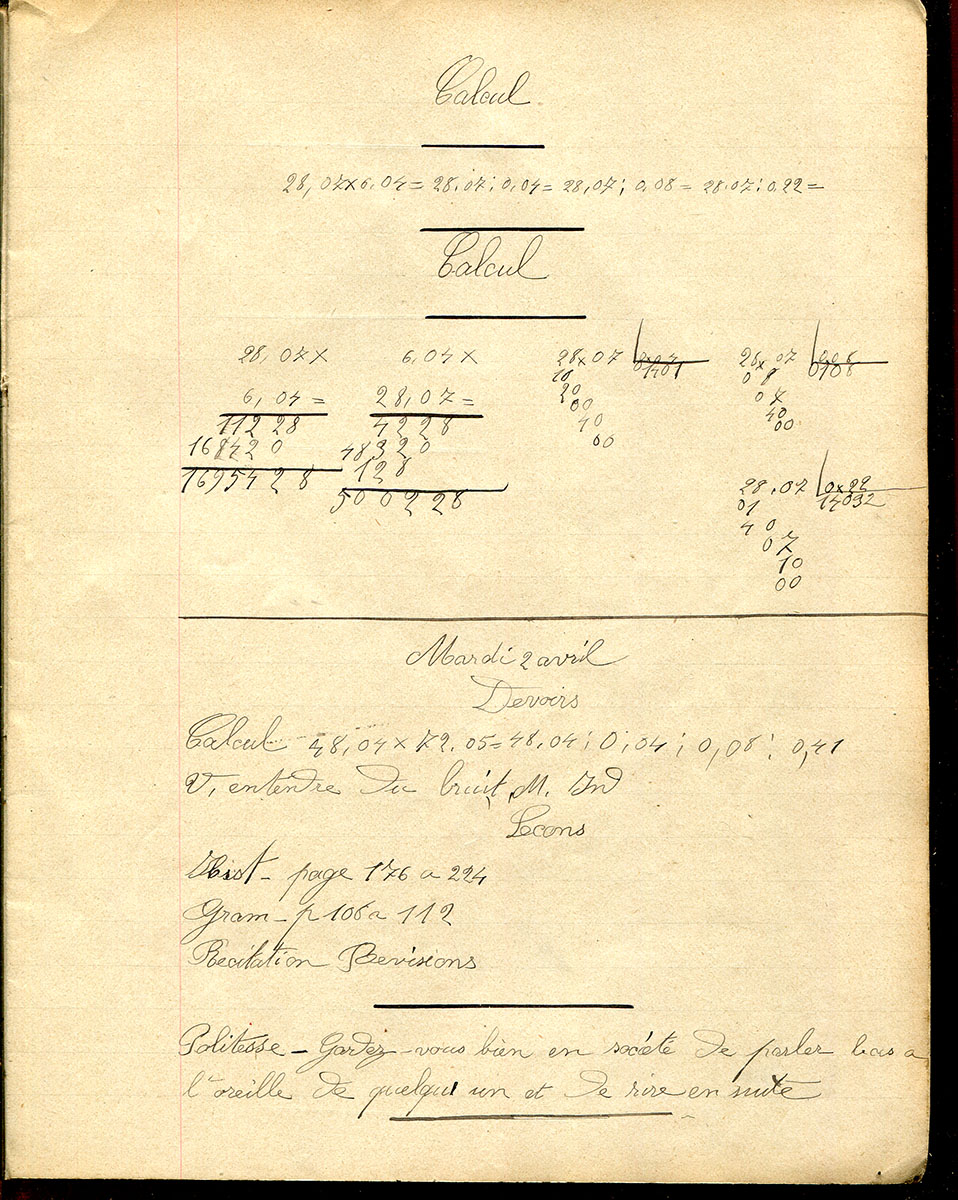 Calcul
28,07x6,04= 28,07: 0,04= 28,07: 0,08= 28,07: 0,22=
Calcul
28,07x 6,04x 28x07 28x07 008
6,04= 28,07= 10 1401 0 0108
11228 4228 20 07
168420 48320 00 40
1695428 128 40 00
500228 00
28,07 0x22
01 14032
40
07
10
00
Mardi 2 avril
Devoirs
Calcul 48,04x72,05=48,04: 0,04: 0,08: 0,41
V, entendre du bruit, M. Ind
Lecons
Hist- page 176 a 224
Gram- p 106 a 112
Recitation Revisions
Politesse - Gardez-vous bien en société de parler bas a
l'oreille de quelqu un et de rire en suite